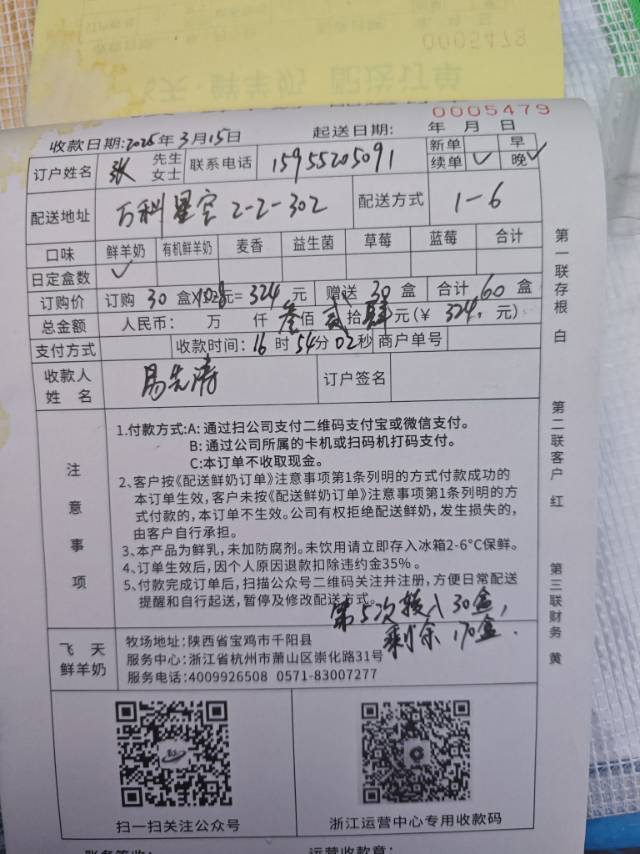 0005479
0005479
收款日期:2025年3月15日 起送日期: 年 月 日
订户姓名 张 先生 女士 联系电话 15955205091 新单 续单 ✓ 早 晚 ✓
配送地址 万科星空 2-2-302 配送方式 1-6
口味 鲜羊奶 有机鲜羊奶 麦香 益生菌 草莓 蓝莓 合计
日定盒数 ✓
订购价 订购 30 盒×10.8元= 324 元 赠送 30 盒 合计 60 盒
总金额 人民币: 万 仟 叁佰 贰拾肆元(¥ 324. 元)
支付方式 收款时间: 16 时 54分 02秒 商户单号
收款人姓名 易先涛 订户签名
注意事项
1.付款方式:A: 通过扫公司支付二维码支付宝或微信支付。
B: 通过公司所属的卡机或扫码机打码支付。
C:本订单不收取现金。
2、客户按《配送鲜奶订单》注意事项第1条列明的方式付款成功的
本订单生效,客户未按《配送鲜奶订单》注意事项第1条列明的方
式付款的,本订单不生效。公司有权拒绝配送鲜奶,发生损失的,
由客户自行承担。
3、本产品为鲜乳，未加防腐剂。未饮用请立即存入冰箱2-6°C保鲜。
4、订单生效后,因个人原因退款扣除违约金35%。
5、付款完成订单后,扫描公众号二维码关注并注册,方便日常配送
提醒和自行起送,暂停及修改配送方式。
第5次接入30盒,
剩余170盒.
飞天鲜羊奶
牧场地址: 陕西省宝鸡市千阳县
服务中心: 浙江省杭州市萧山区崇化路31号
服务电话: 4009926508 0571-83007277
扫一扫关注公众号 浙江运营中心专用收款码
第一联存根 白
第二联客户 红
第三联财务 黄